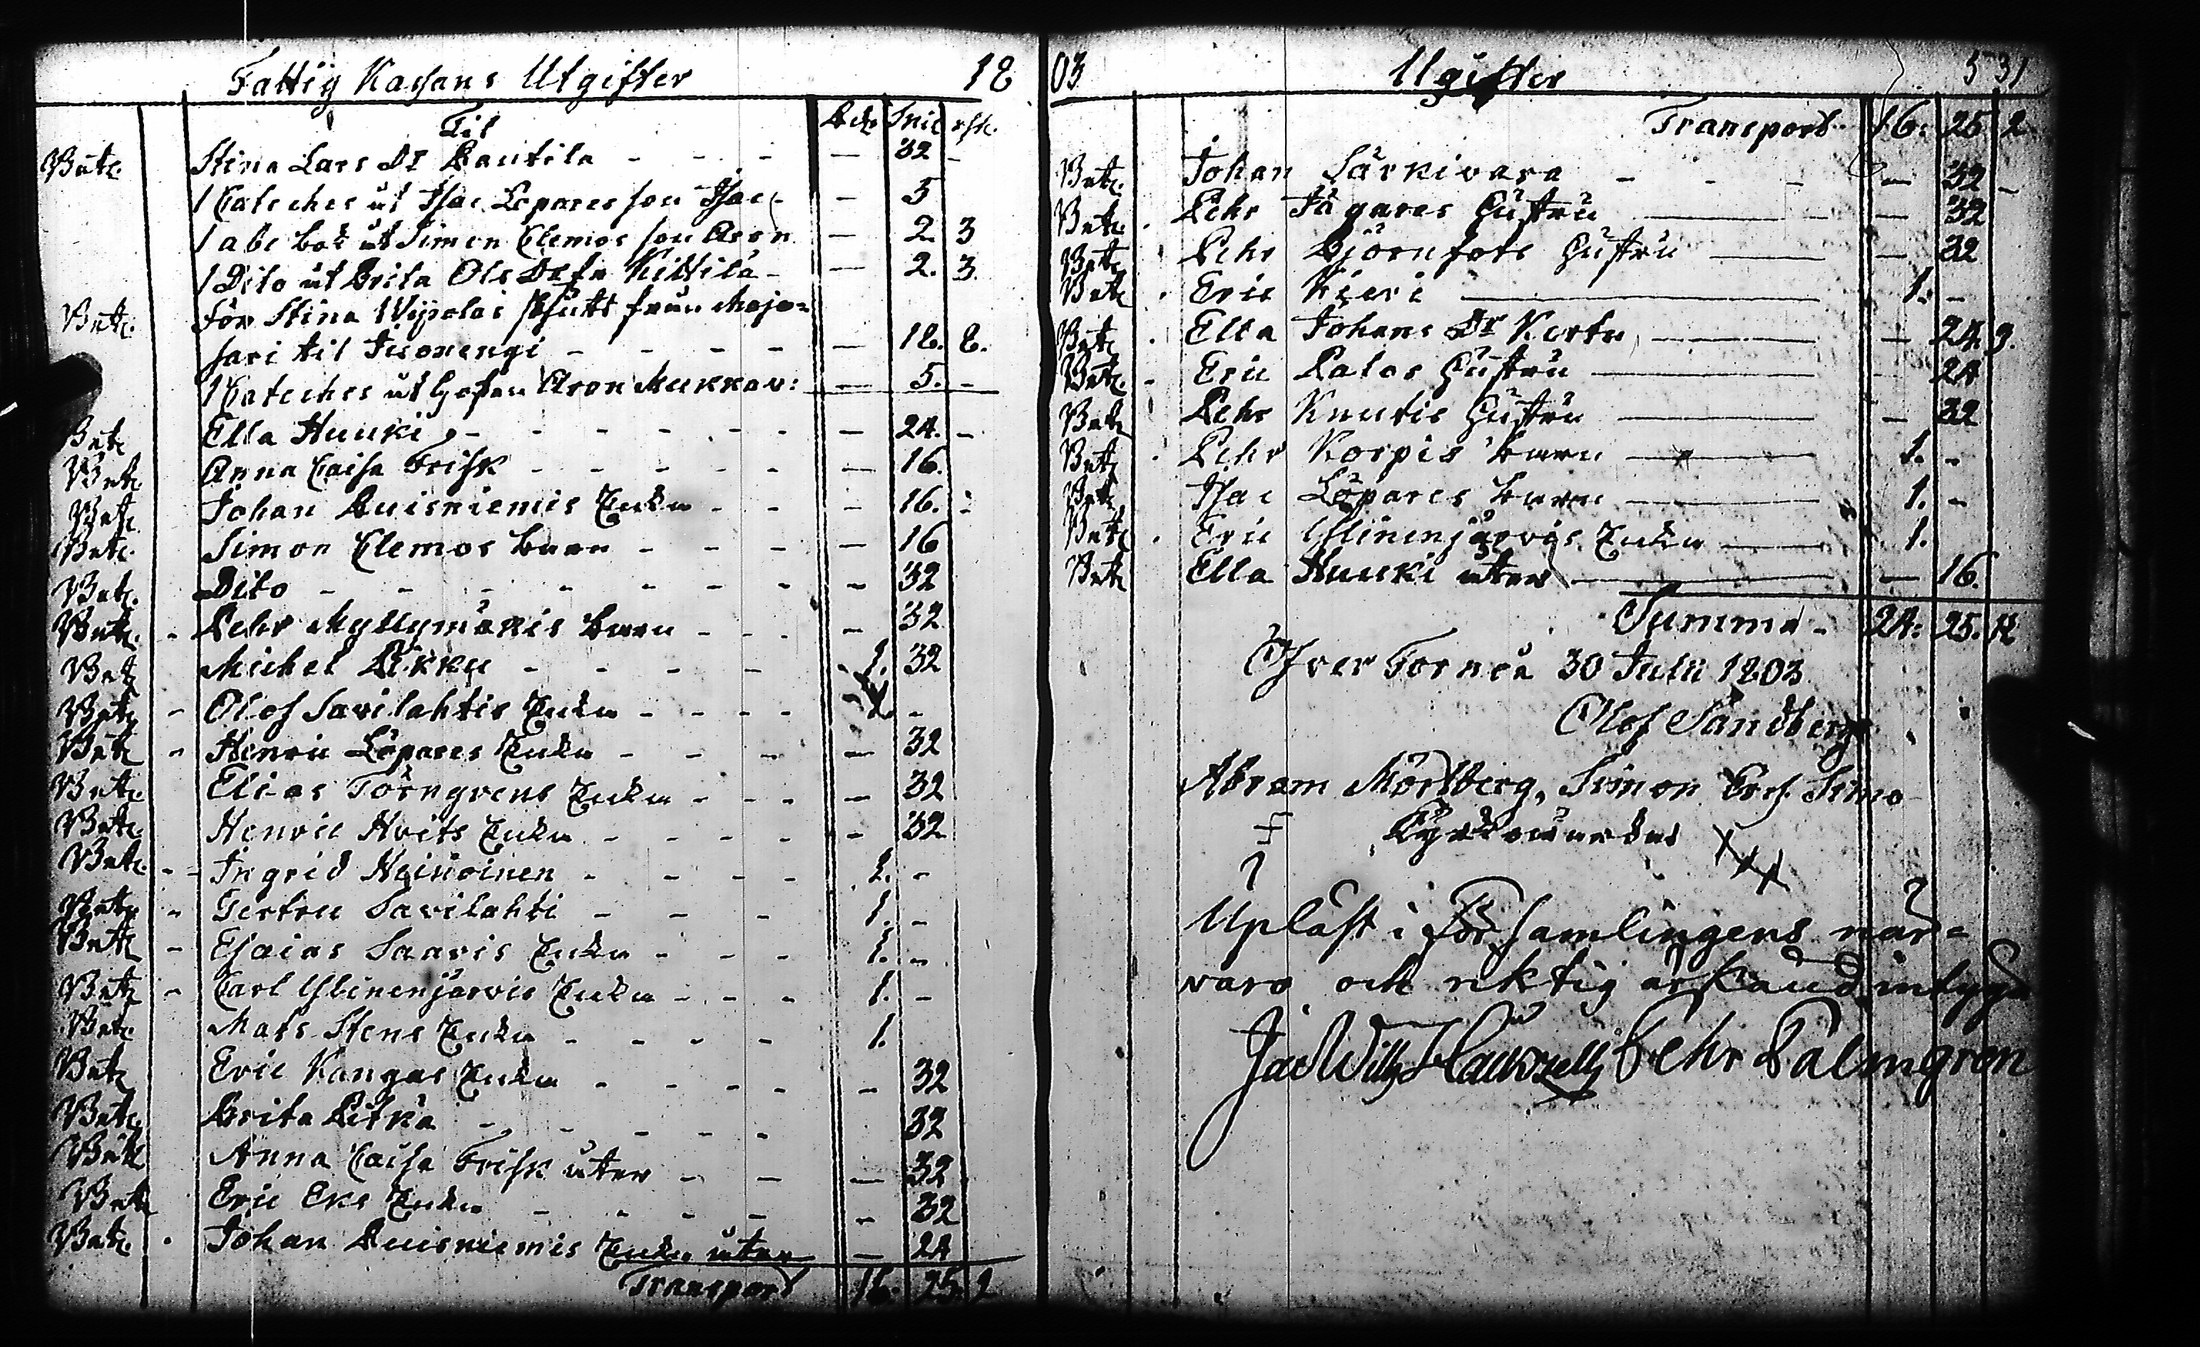 Fattig Kassans Utgifter 18
Til Rdr Skil rst.
Betr. Stina Lars Dr Rautila - - - — 32 -
1 Cateches åt Isac Löpares son Isac - — 5
1 abc bok åt Simon Clemos son Aron — 2. 3
1 Dito åt Brita Ols Dr fr Kittilä - — 2. 3.
Betr. för Stina Wipolas skjuts från Majo=
sari til Tuonengi - - - - — 18. 8.
1 Cateches åt Gossen Aron Mukkav: — 5. -
Betr Ella Huuki - - - - - - — 24. -
Betr. Anna Caisa Frisk - - - - - — 16.
Betr. Johan Ruisniemis Enka - - - 16. -
Betr. Simon Clemos barn - - - - — 16
Betr. Dito - - - - - - - - 32
Betr. - Pehr Myllymäkis barn - - - — 32
Betr Michel Pikku - - - - 1. 32
Betr - Olof Savilahtis Enka - - - - -
Betr - Henric Löpares Enka - - - — 32
Betr. Elias Törngrens Enka - - - — 32
Betr. Henric Hvits Enka - - - - - 32
Betr. - Ingrid Heinoinen - - - - 1. -
Betr. - Gertru Savilahti - - - 1. -
Betr - Esaias Saaris Enka - - - 1. -
Betr - Carl Ylinenjärvis Enka - - - 1. -
Betr. Mats Stens Enka - - - - 1.
Betr Eric Kangas Enka - - - - - 32
Betr. Brita Pitkä - - - - - 32
Betr Anna Caisa Frisk åter - - — 32
Betr Eric Eks Enka - - - - - 32
Betr. . Johan Ruisniemis Enka åter — 24
Transport 16. 25. 2
03 Ugifter 531
Transport 16. 25 2
Betr. Johan Särkivara - - - — 32 -
Betr. . Pehr Jägares Hustru — — 32
Betr. Pehr Björnfots Hustru — — 32
Betr . Eric Kieri — 1. -
Betr. . Ella Johans Dr — — 24. 3.
Betr. - Eric Palos Hustru — 24
Betr Pehr Knutis Hustru — — 32
Betr. . Pehr Korpis barn — 1. -
Betr Isac Löpares barn — 1. -
Betr. . Eric Ylinenjärvis Enka — 1.
Betr Ella Huuki åter — — 16.
Summa - 24. 25.
Öfver Torneå 30 Juli 1803
Olof Sandberg
Abram Mörtberg, Simon Simo
Kyrkovärdar
Upläst i Församlingens när=
varo och riktig erkänd, intyga
Pehr Palmgren